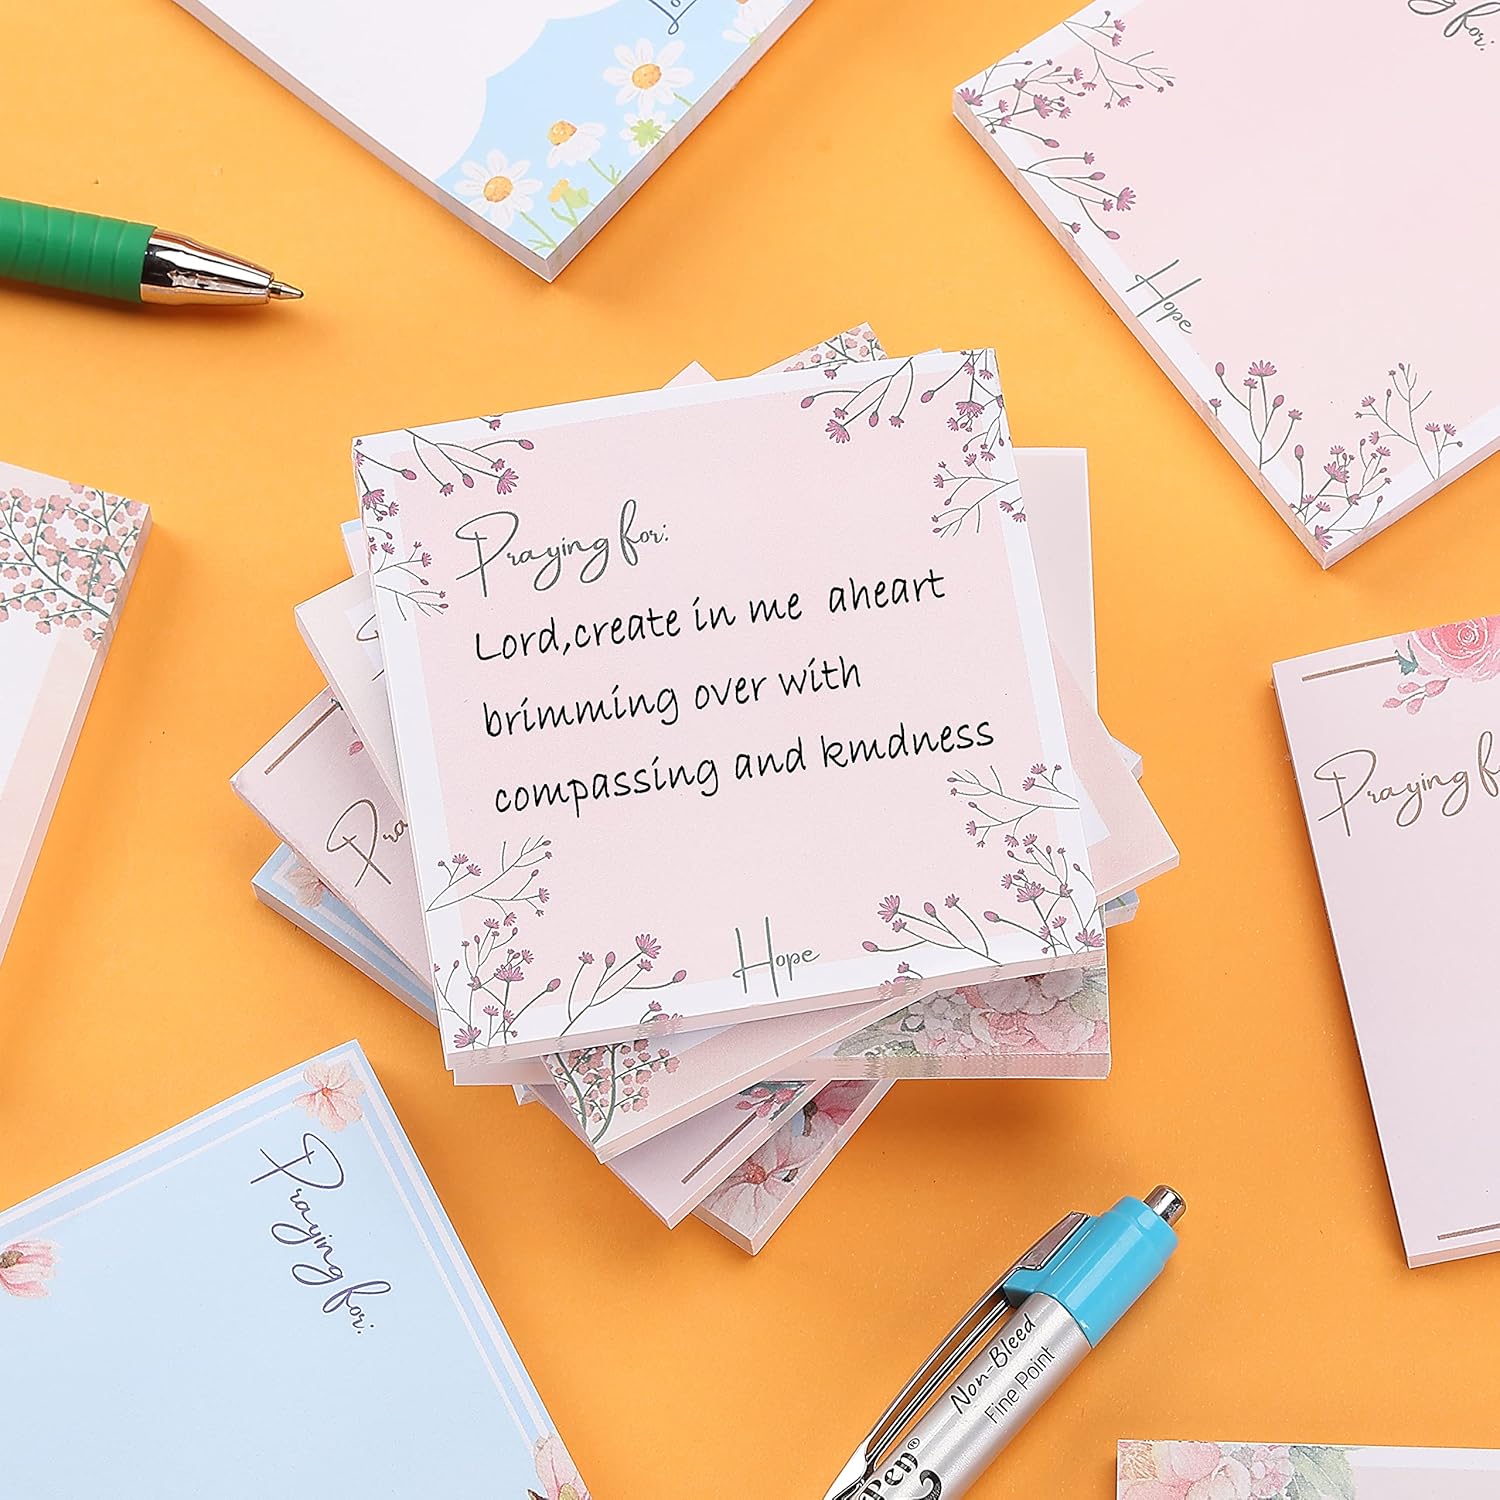 Lo
g for:
Hope
Praying for:
Lord,create in me aheart
brimming over with
compassing and kmdness
Hope
P
Pra
Praying f
Praying for:
Non-Bleed
Fine Point
Pen®